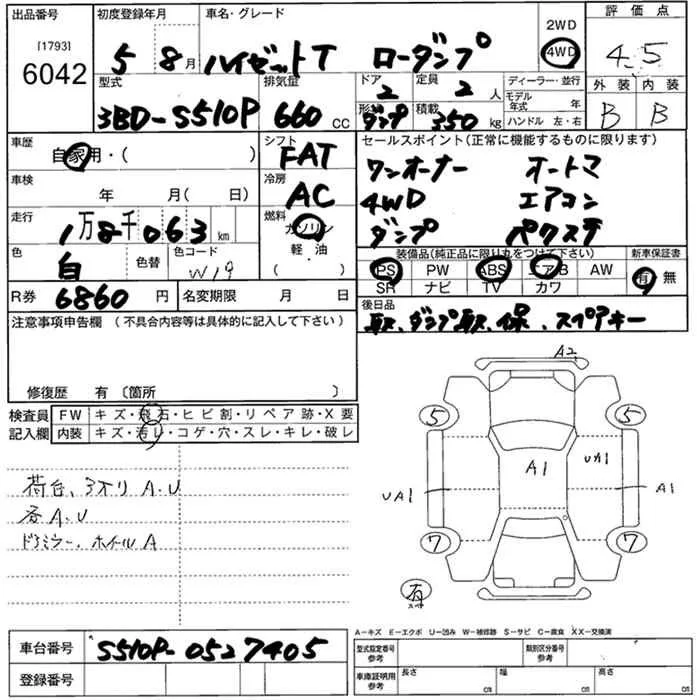 出品番号 初度登録年月 車名・グレード 2WD 評価点
[1793] 6042 5 8月 ハイゼットT ローダンプ 4WD 4.5
型式 排気量 ドア 定員 ディーラー・並行 外装 内装
3BD-S510P 660 CC 2 2人 モデル年式 年 B B
形状 ダンプ 積載 350kg ハンドル 左・右
車歴 自家用・( ) シフト FAT セールスポイント(正常に機能するものに限ります)
車検 年 月( 日) 冷房 AC ワンオーナー オートマ
4WD エアコン
走行 1万8千063km 燃料 ガソリン 軽油 ( ) ダンプ パワステ
色 白 色替 色コード W19 装備品(純正品に限り丸をつけて下さい) 新車保証書
PS PW ABS エアB AW 有 無
SR ナビ TV カワ
R券 6860円 名変期限 月 日 後日品
注意事項申告欄 (不具合内容等は具体的に記入して下さい) 取、ダンプ取、保、スペアキー
修復歴 有〔箇所 〕
検査員記入欄 FW キズ・飛石・ヒビ割・リペア跡・X要
内装 キズ・汚レ・コゲ・穴・スレ・キレ・破レ
荷台、3方リ A.U
各A.U
ドアミラー、ホイールA
A2
5 5
A1 UA1
UA1 A1
7 7
有
スペア
A-キズ E-エクボ U-凹み W-補修跡 S-サビ C-腐食 XX-交換済
車台番号 S510P-0527405 型式指定番号 参考 類別区分番号 参考
登録番号 車庫証明用 参考 長さ cm 幅 cm 高さ cm